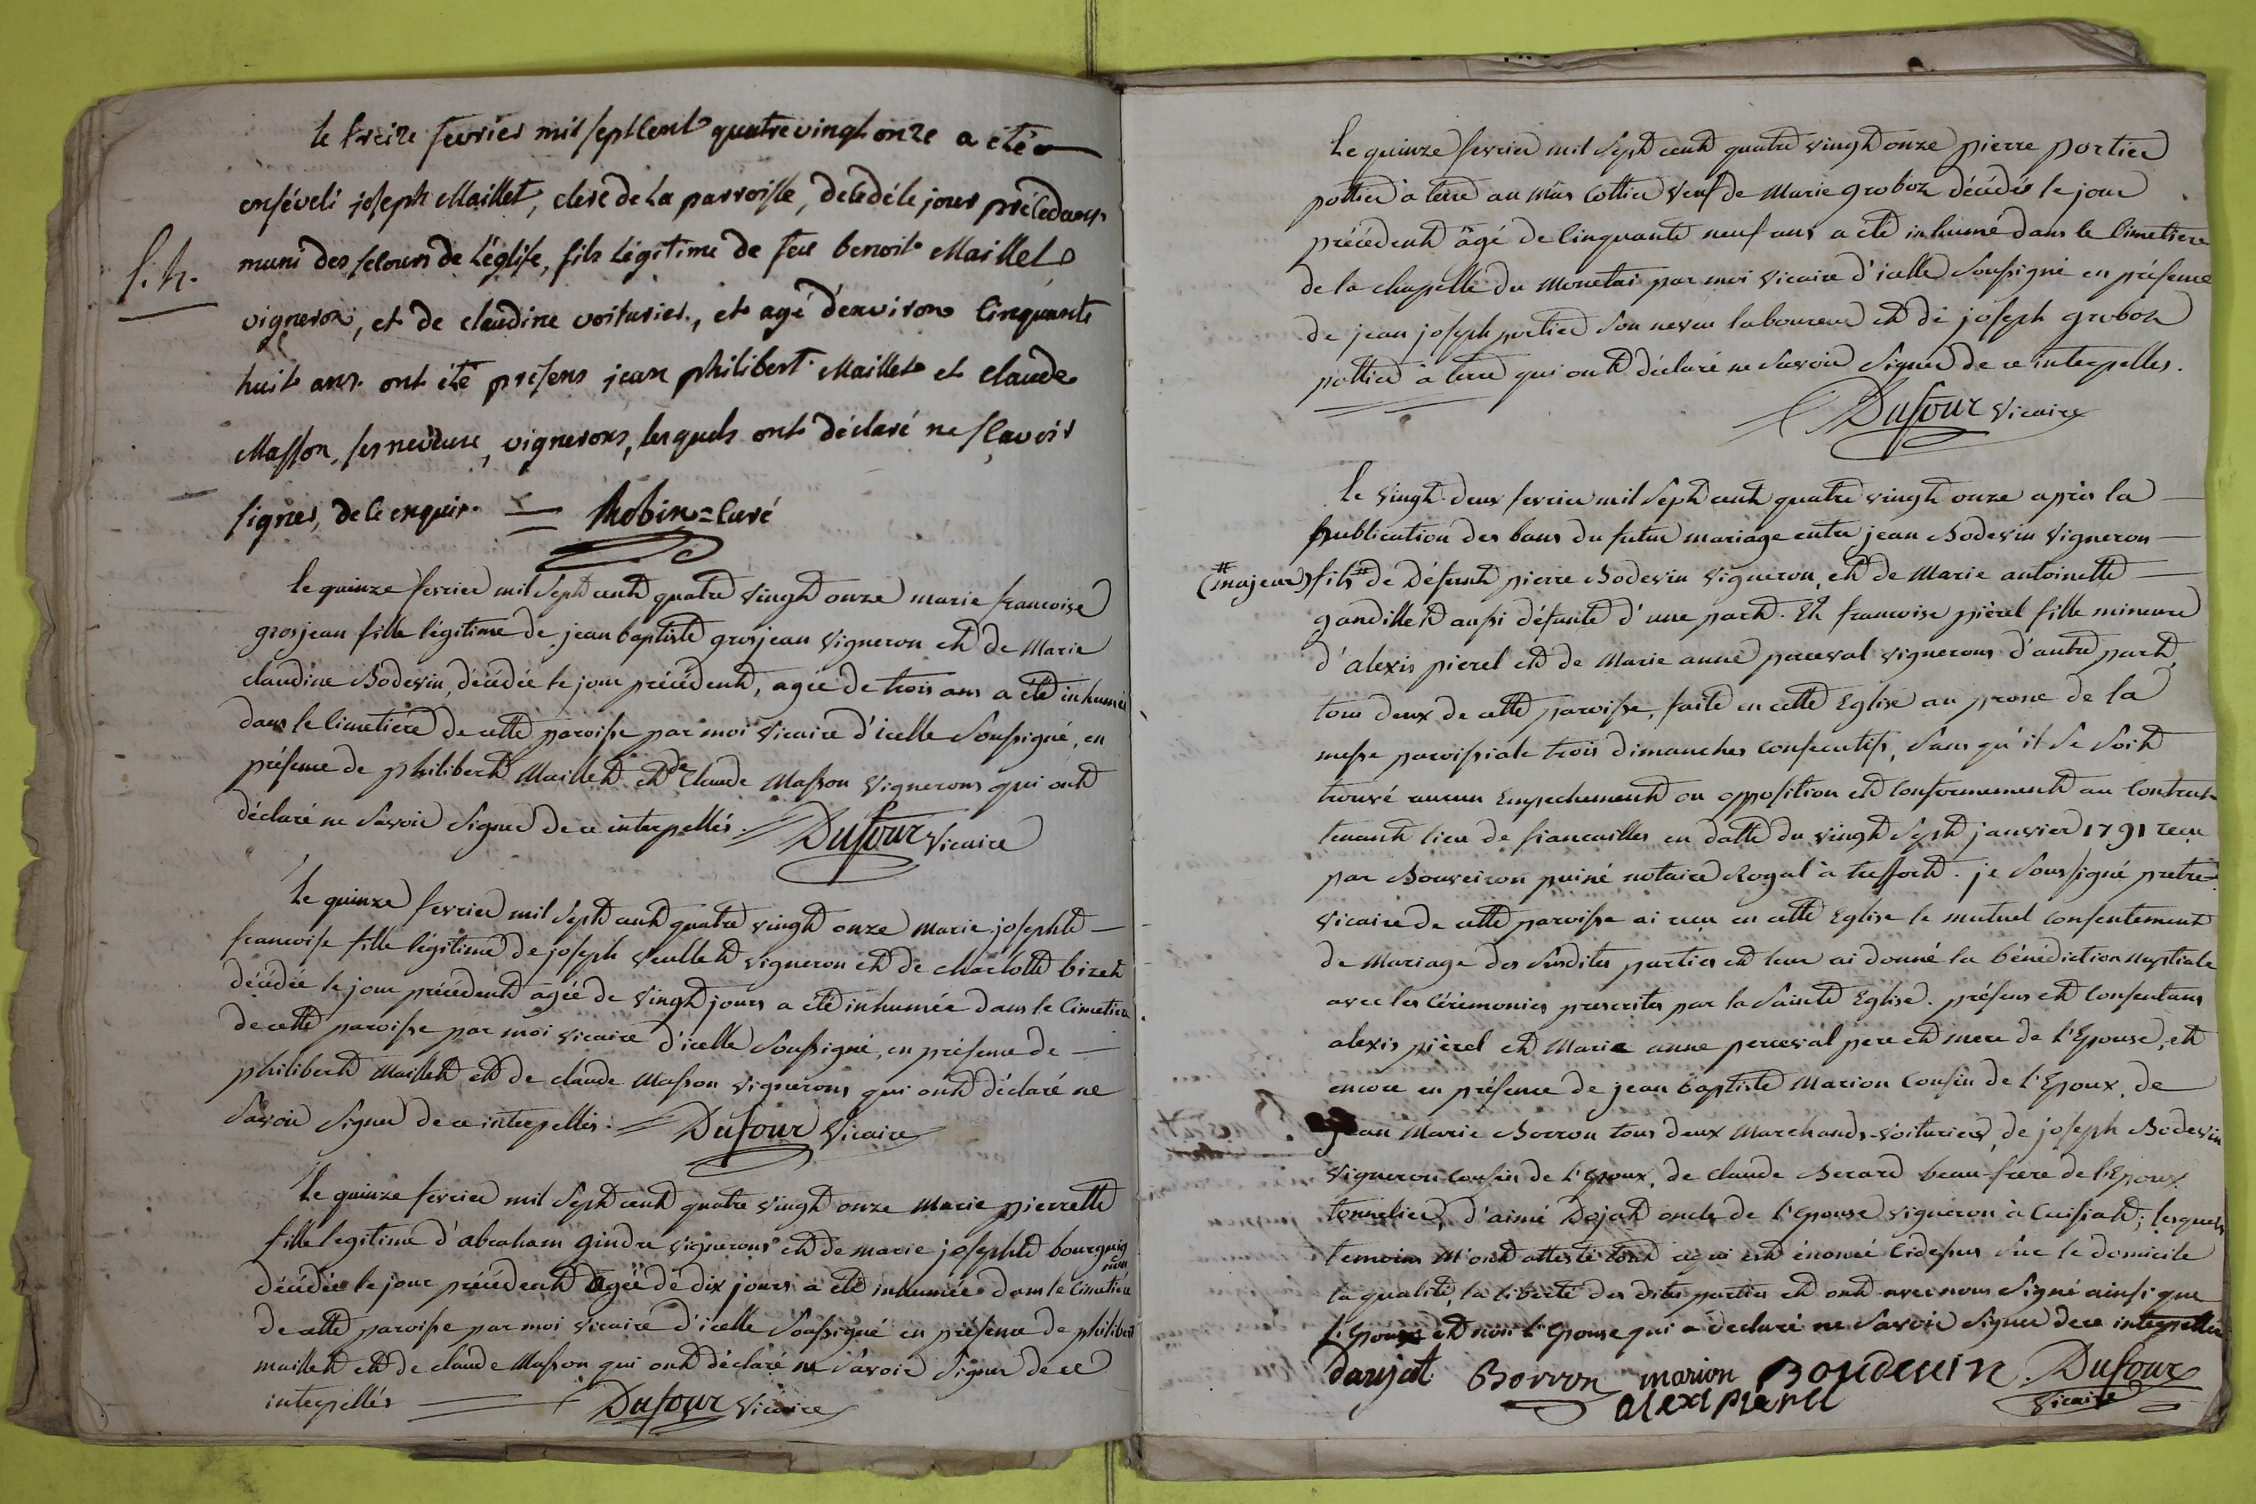 le treize fevrier mil sept Cent quatre vingt onze a été
enséveli joseph Maillet, clerc de la parroisse, décédé le jour précédant
muni des secours de l'église, fils légitime de feu benoit Maillet
f. h.
vigneron, et de claudine voiturier, et agé d'environ Cinquante
huit ans. ont été présens jean philibert Maillet et claude
Masson, ses neveux, vignerons, lesquels ont déclaré ne sçavoir
signer, de ce enquis. Robin = Curé
le quinze fevrier mil Sept cent quatre vingt onze marie francoise
grosjean fille légitime de jean baptiste grosjean vigneron et de Marie
claudine Bodevin, décédée le jour précédent, agée de trois ans a été inhumée
dans le Cimetiere de cette paroisse par moi vicaire d'icelle Soussigné, en
présence de philibert Maillet et de Claude Masson vignerons qui ont
déclaré ne Savoir Signer de ce interpellés. Dufour vicaire
le quinze fevrier mil Sept cent quatre vingt onze marie josephte
francoise fille légitime de joseph veullet vigneron et de charlotte bizet
décédée le jour précédent agée de vingt jours a été inhumée dans le Cimetiere
de cette paroisse par moi vicaire d'icelle Soussigné, en présence de
philibert Maillet et de claude Masson vignerons qui ont déclaré ne
Savoir Signer de ce interpellés. Dufour vicaire
le quinze fevrier mil Sept cent quatre vingt onze Marie pierrette
fille legitime d'abraham gindre vignerons et de marie josephte bourguig
non
décédée le jour précédent agée de dix jours a été inhumée dans le Cimetiere
de cette paroisse par moi vicaire d'icelle Soussigné en présence de philibert
maillet et de claude Masson qui ont déclaré ne Savoir Signer de ce
interpellés Dufour vicaire
le quinze fevrier mil Sept cent quatre vingt onze pierre portier
pottier à terre au Mas Cottier veuf de Marie grobon décédé le jour
précédent âgé de Cinquante neuf ans a été inhumé dans le Cimetiere
de la chapelle du Monetai par moi vicaire d'icelle Soussigné en présence
de jean joseph portier Son neveu laboureur et de joseph grobon
pottier à terre qui ont déclaré ne Savoir Signer de ce interpellés.
Dufour vicaire
le vingt deux fevrier mil Sept cent quatre vingt onze après la
publication des bans du futur mariage entre jean Bodevin vigneron
(# majeur) fils # de défunt pierre Bodevin vigneron, et de Marie antoinette
gandillet aussi défunte d'une part. Et francoise pierel fille mineure
d'alexis pierel et de Marie anne perceval vignerons d'autre part,
tous deux de cette paroisse, faite en cette Eglise au prone de la
messe paroissiale trois dimanches consecutifs, Sans qu'il Se Soit
trouvé aucun Empechement ou opposition et conformement au Contrat
tenant lieu de fiancailles en datte du vingt Sept janvier 1791 reçu
par Bouveiron puiné notaire Royal à treffort. je Soussigné pretre
vicaire de cette paroisse ai reçu en cette Eglise le mutuel consentement
de Mariage des Susdites parties et leur ai donné la bénédiction nuptiale
avec les Cérémonies prescrites par la Sainte Eglise. présens et Consentans
alexis pièrel et Marie anne perceval pere et mere de l'Epouse, et
encore en présence de jean baptiste Marion Cousin de l'Epoux, de
jean Marie Borron tous deux Marchands-voituriers, de joseph Bodevin
vigneron Cousin de l'Epoux, de claude Berard beau-frere de l'Epoux
tonnelier, d'aimé Dojat oncle de l'Epouse vigneron à Cuisiat; lesquels
temoins M'ont attesté tout ce qui est énoncé Cidessus Sur le domicile
la qualité, la liberté des dites parties et ont avec nous Signé ainsi que
l'Epoux et non l'Epouse qui a déclaré ne Savoir Signer de ce interpellée
daujat Borron marion Boudevin Dufour
alexi pierel vicaire